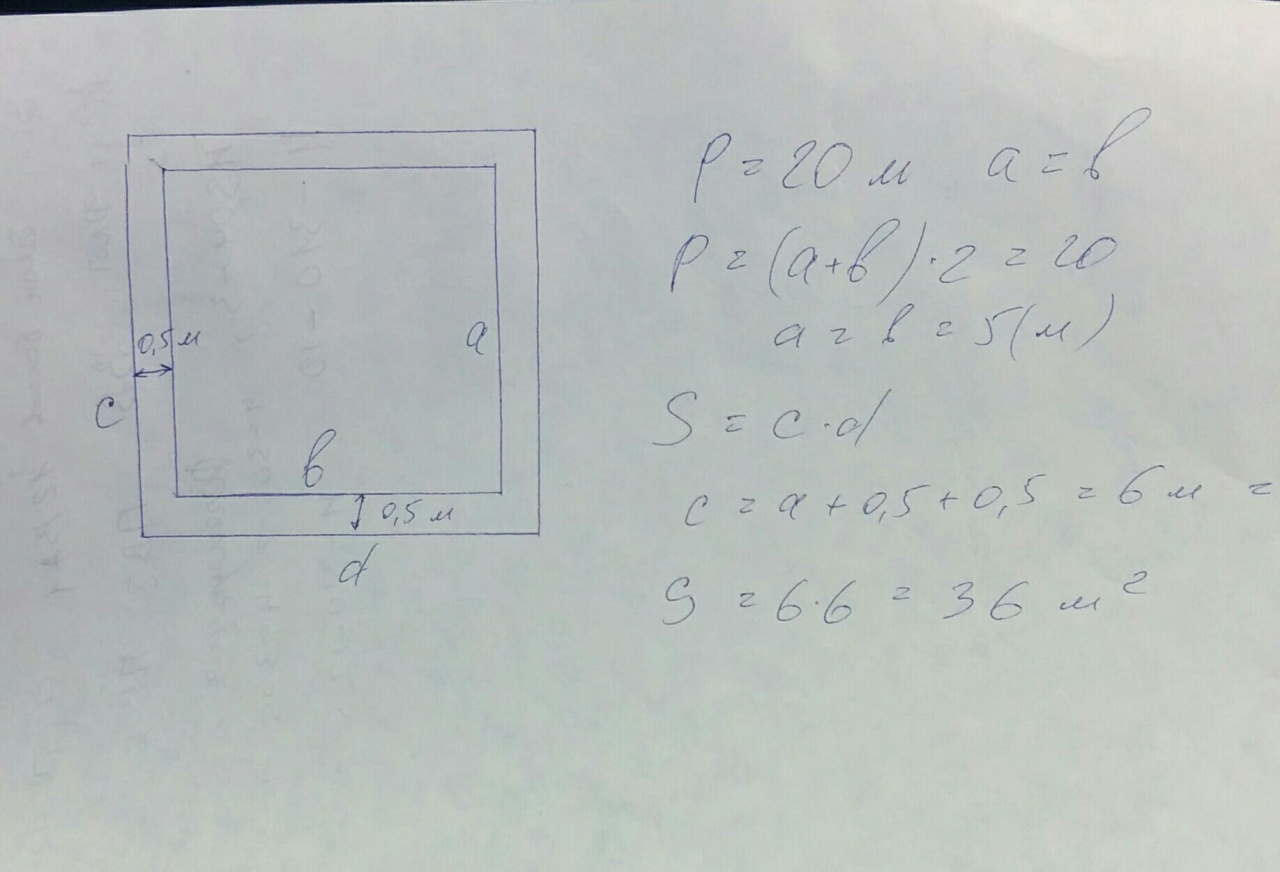 P = 20 м a = в
P = (a+в)·2 = 20
a = в = 5(м)
S = c·d
c = a + 0,5 + 0,5 = 6 м =
S = 6·6 = 36 м²
0,5 м
a
c
в
0,5 м
d